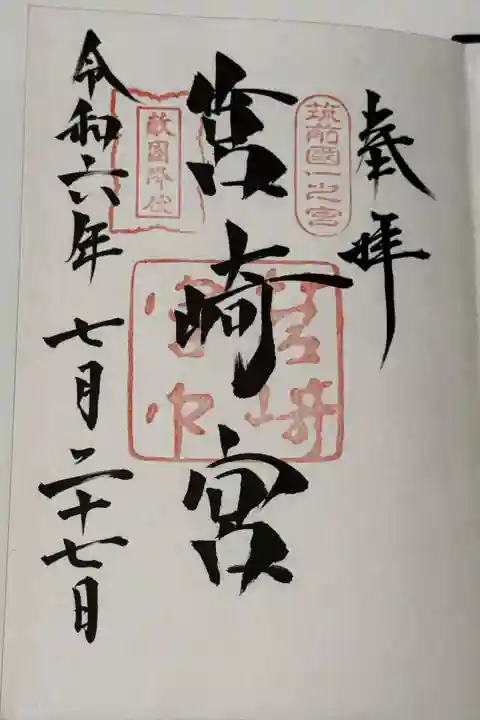 奉拝
筑前國一之宮
筥崎宮
敵國降伏
令和六年 七月二十七日